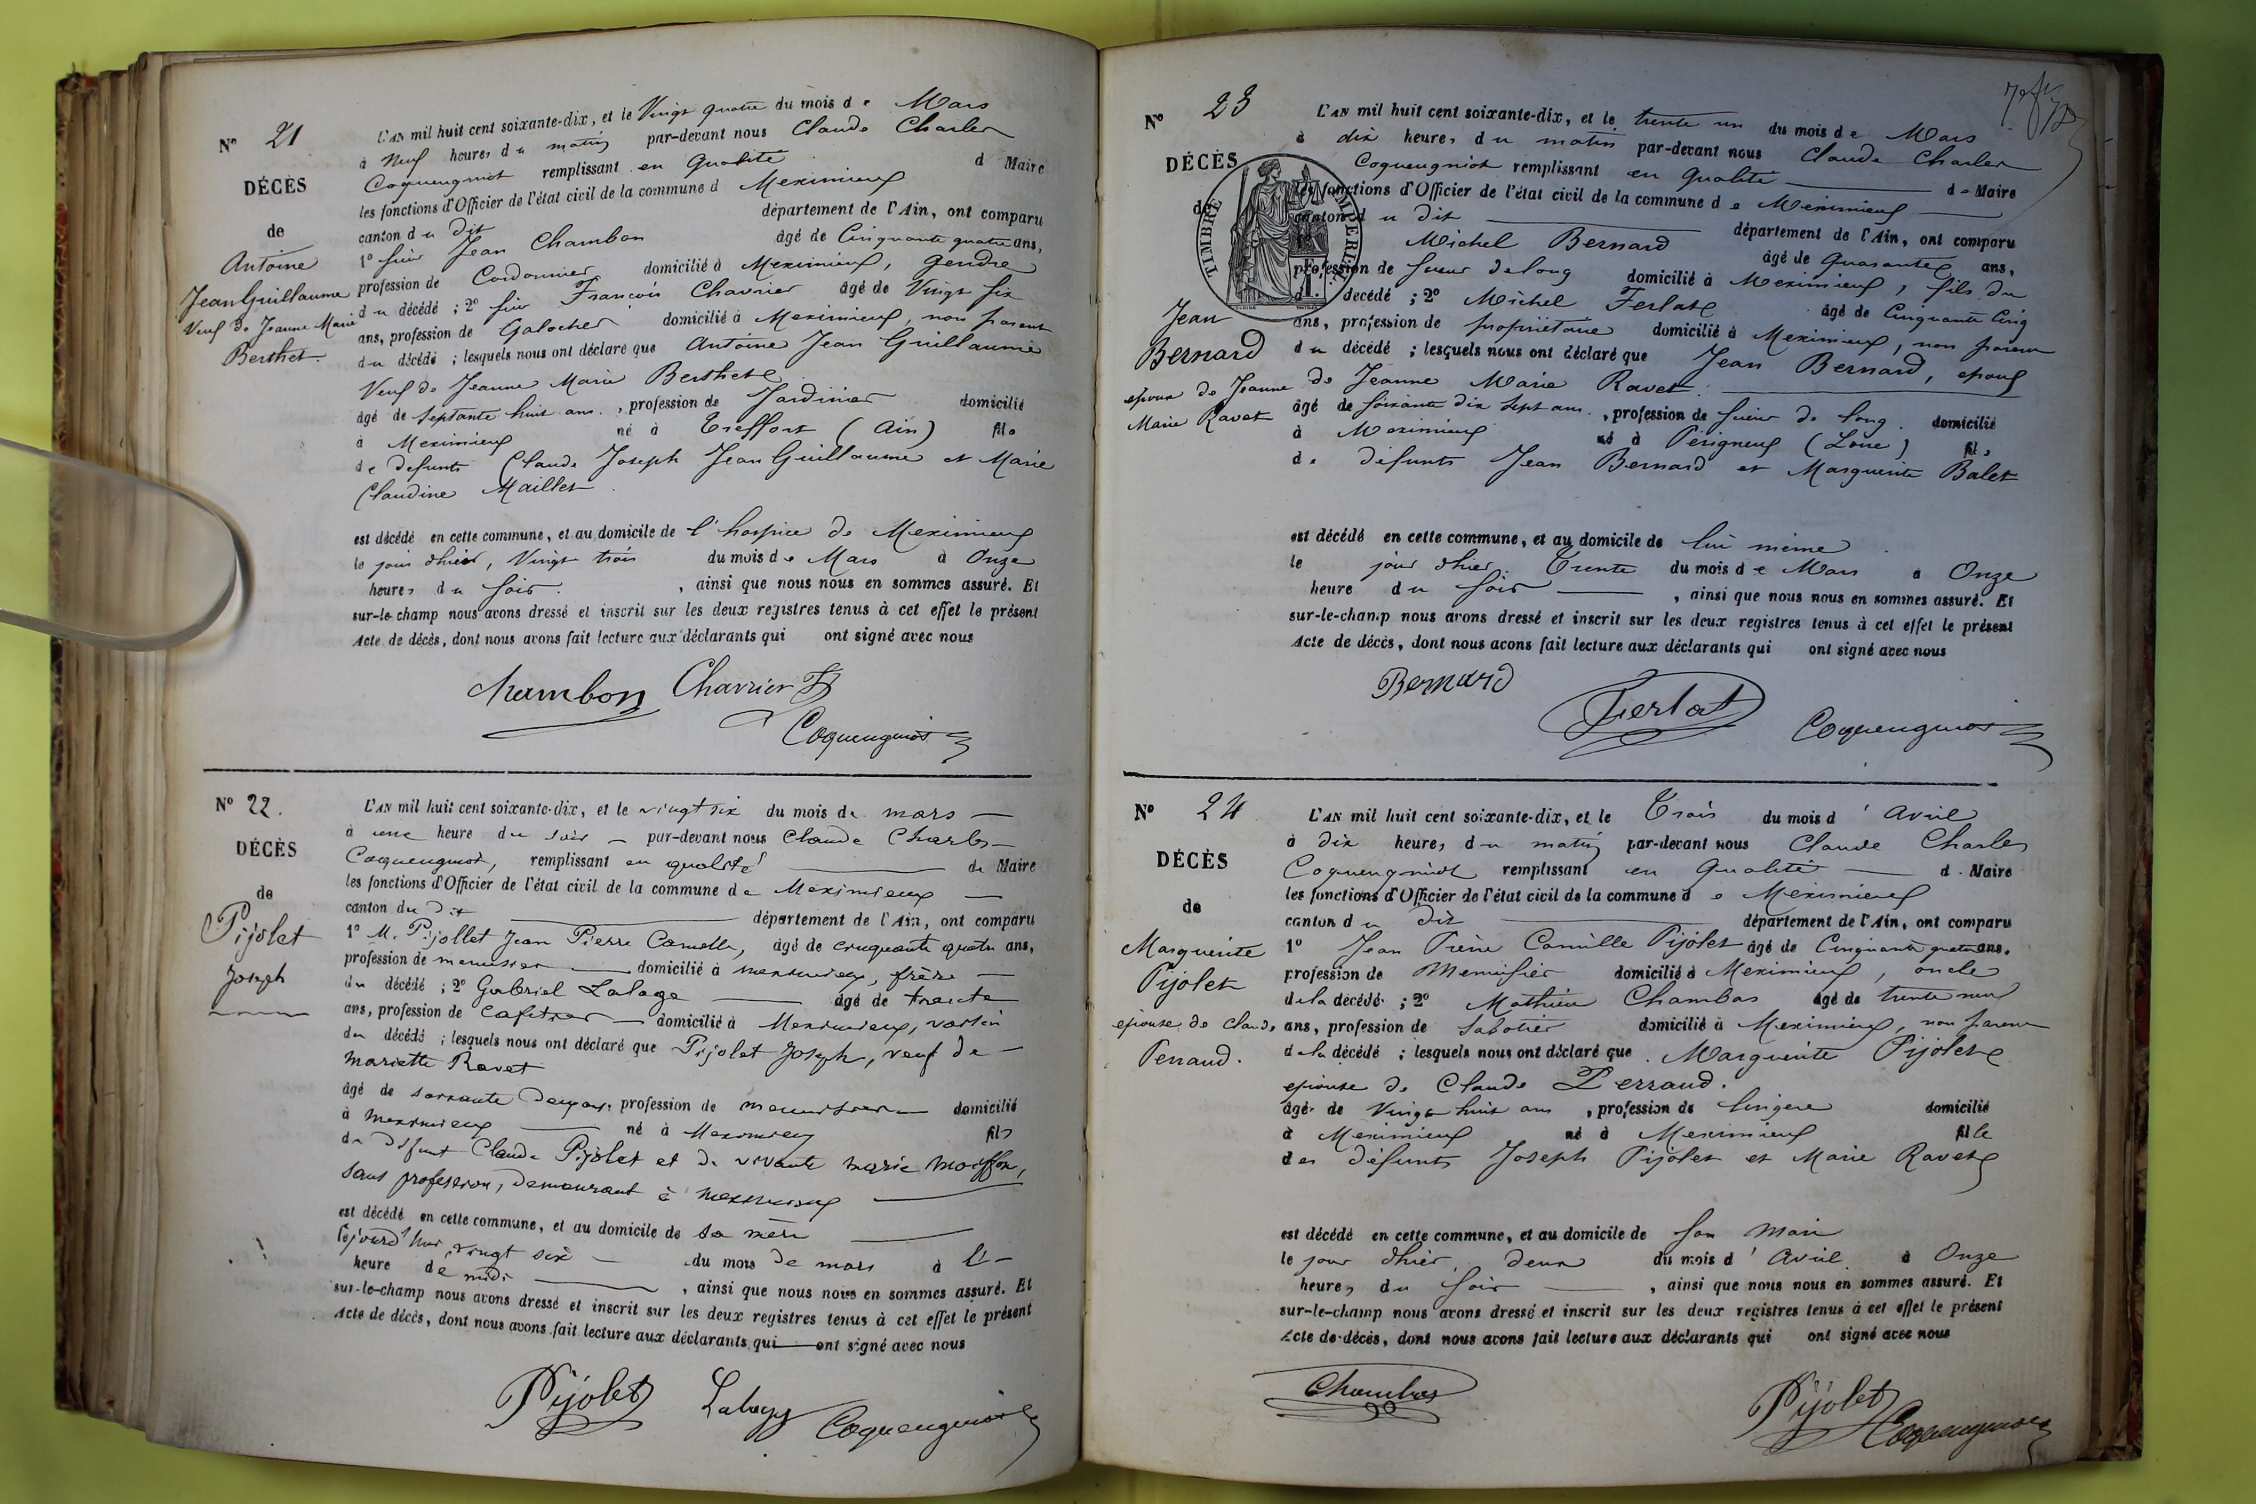 N° 21
DÉCÈS
de
Antoine
Jean Guillaume
Veuf de Jeanne Marie
Berthet.
L'AN mil huit cent soixante-dix, et le Vingt quatre du mois de Mars
à Neuf heures du matin par-devant nous Claude Charles
Coquengniot remplissant en qualité d Maire
les fonctions d'Officier de l'état civil de la commune d Meximieux
canton du dit département de l'Ain, ont comparu
1° sieur Jean Chambon âgé de Cinquante quatre ans,
profession de Cordonnier domicilié à Meximieux, gendre
du décédé ; 2° sieur François Chavrier âgé de Vingt six
ans, profession de Galocher domicilié à Meximieux, non parent
du décédé ; lesquels nous ont déclaré que Antoine Jean Guillaume
Veuf de Jeanne Marie Berthet
âgé de septante huit ans. , profession de Jardinier domicilié
à Meximieux né à Treffort (Ain) fils
de defunts Claude Joseph Jean Guillaume et Marie
Claudine Maillet
est décédé en cette commune, et au domicile de l'hospice de Meximieux
le jour d'hier, Vingt trois du mois de Mars à Onze
heures du soir. , ainsi que nous nous en sommes assuré. Et
sur-le-champ nous avons dressé et inscrit sur les deux registres tenus à cet effet le présent
Acte de décès, dont nous avons fait lecture aux déclarants qui ont signé avec nous
Chambon Chavrier
Coquengniot
N° 22.
DÉCÈS
de
Pijolet
Joseph
L'AN mil huit cent soixante-dix, et le vingt six du mois de mars
à une heure du soir par-devant nous Claude Charles
Coquengniot, remplissant en qualité de Maire
les fonctions d'Officier de l'état civil de la commune de Meximieux
canton du dit département de l'Ain, ont comparu
1° M. Pijollet Jean Pierre Camille, âgé de cinquante quatre ans,
profession de menuisier domicilié à meximieux, frère
du décédé ; 2° Gabriel Lalage âgé de trente
ans, profession de cafetier domicilié à Meximieux, voisin
du décédé ; lesquels nous ont déclaré que Pijolet Joseph, veuf de
mariette Ravet
âgé de soixante deux ans, profession de menuisier domicilié
à meximieux né à Meximieux fils
de défunt Claude Pijolet et de vivante marie
sans profession, demeurant à meximieux
est décédé en cette commune, et au domicile de sa mère
le jourd'hui vingt six du mois de mars à l'
heure de midi , ainsi que nous nous en sommes assuré. Et
sur-le-champ nous avons dressé et inscrit sur les deux registres tenus à cet effet le présent
Acte de décès, dont nous avons fait lecture aux déclarants qui ont signé avec nous
Pijolet Coquengniot
N° 23
DÉCÈS
de
TIMBRE IMPERIAL
Jean
Bernard
epoux de Jeanne
Marie Ravet
L'AN mil huit cent soixante-dix, et le trente un du mois de Mars
à dix heures du matin par-devant nous Claude Charles
Coquengniot remplissant en qualité de Maire
les fonctions d'Officier de l'état civil de la commune de Meximieux
canton du dit département de l'Ain, ont comparu
Michel Bernard âgé de Quarante ans,
profession de scieur de long domicilié à Meximieux, fils du
decédé ; 2° Michel Ferlat âgé de Cinquante Cinq
ans, profession de propriétaire domicilié à Meximieux, non parent
du décédé ; lesquels nous ont déclaré que Jean Bernard, epoux
de Jeanne Marie Ravet.
âgé de soixante dix sept ans. , profession de scieur de long. domicilié
à Meximieux né à Périgneux (Loire) fils
de défunts Jean Bernard et Marguerite Balet
est décédé en cette commune, et au domicile de lui même
le jour d'hier. Trente du mois de Mars à Onze
heure du soir , ainsi que nous nous en sommes assuré. Et
sur-le-champ nous avons dressé et inscrit sur les deux registres tenus à cet effet le présent
Acte de décès, dont nous avons fait lecture aux déclarants qui ont signé avec nous
Bernard Ferlat Coquengniot
N° 24
DÉCÈS
de
Marguerite
Pijolet
epouse de Claude
Perraud.
L'AN mil huit cent soixante-dix, et le Trois du mois d'Avril
à dix heures du matin par-devant nous Claude Charles
Coquengniot remplissant en Qualité d Maire
les fonctions d'Officier de l'état civil de la commune de Meximieux
canton du dit département de l'Ain, ont comparu
1° Jean Pierre Camille Pijolet âgé de Cinquante quatre ans.
profession de Menuisier domicilié à Meximieux, oncle
de la décédé ; 2° Mathieu Chambas âgé de trente neuf
ans, profession de Sabotier domicilié à Meximieux, non parent
de la décédé ; lesquels nous ont déclaré que Marguerite Pijolet
epouse de Claude Perraud.
âgé de Vingt huit ans , profession de lingere domicilié
à Meximieux né à Meximieux fille
des défunts Joseph Pijolet et Marie Ravet
est décédé en cette commune, et au domicile de son mari
le jour d'hier, deux du mois d'Avril à Onze
heures du soir , ainsi que nous nous en sommes assuré. Et
sur-le-champ nous avons dressé et inscrit sur les deux registres tenus à cet effet le présent
Acte de décès, dont nous avons fait lecture aux déclarants qui ont signé avec nous
Chambas Pijolet
Coquengniot